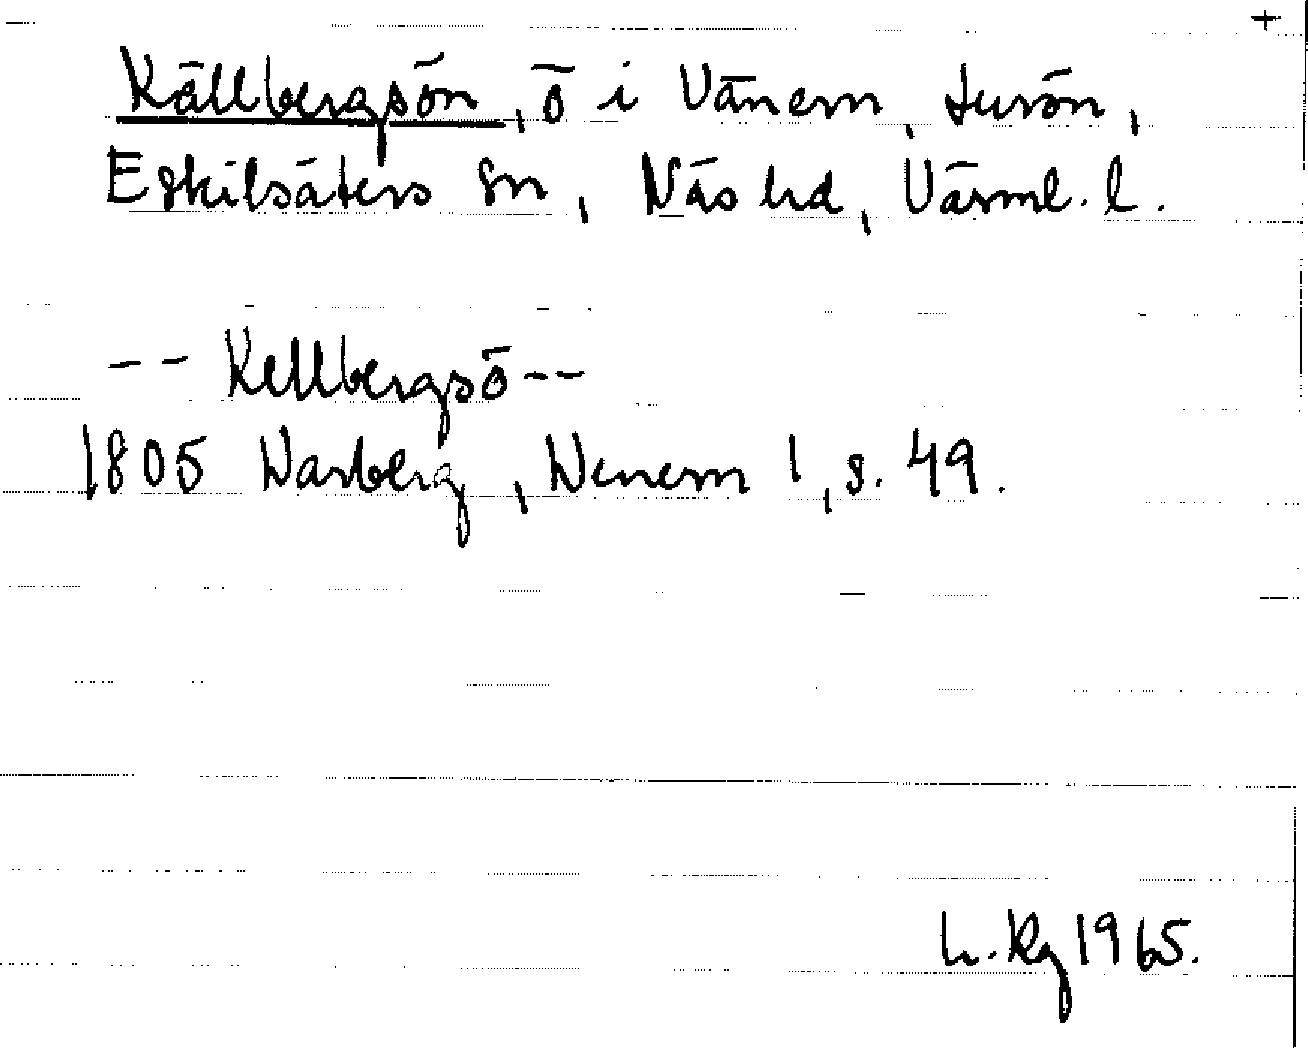 +
Källbergsön, ö i Vänern, Lurön,
Eskilsäters sn, Näs hd, Värml. l.
-- Kellbergsö --
1805 Warberg, Wenern 1, s. 49.
h. Rz 1965.